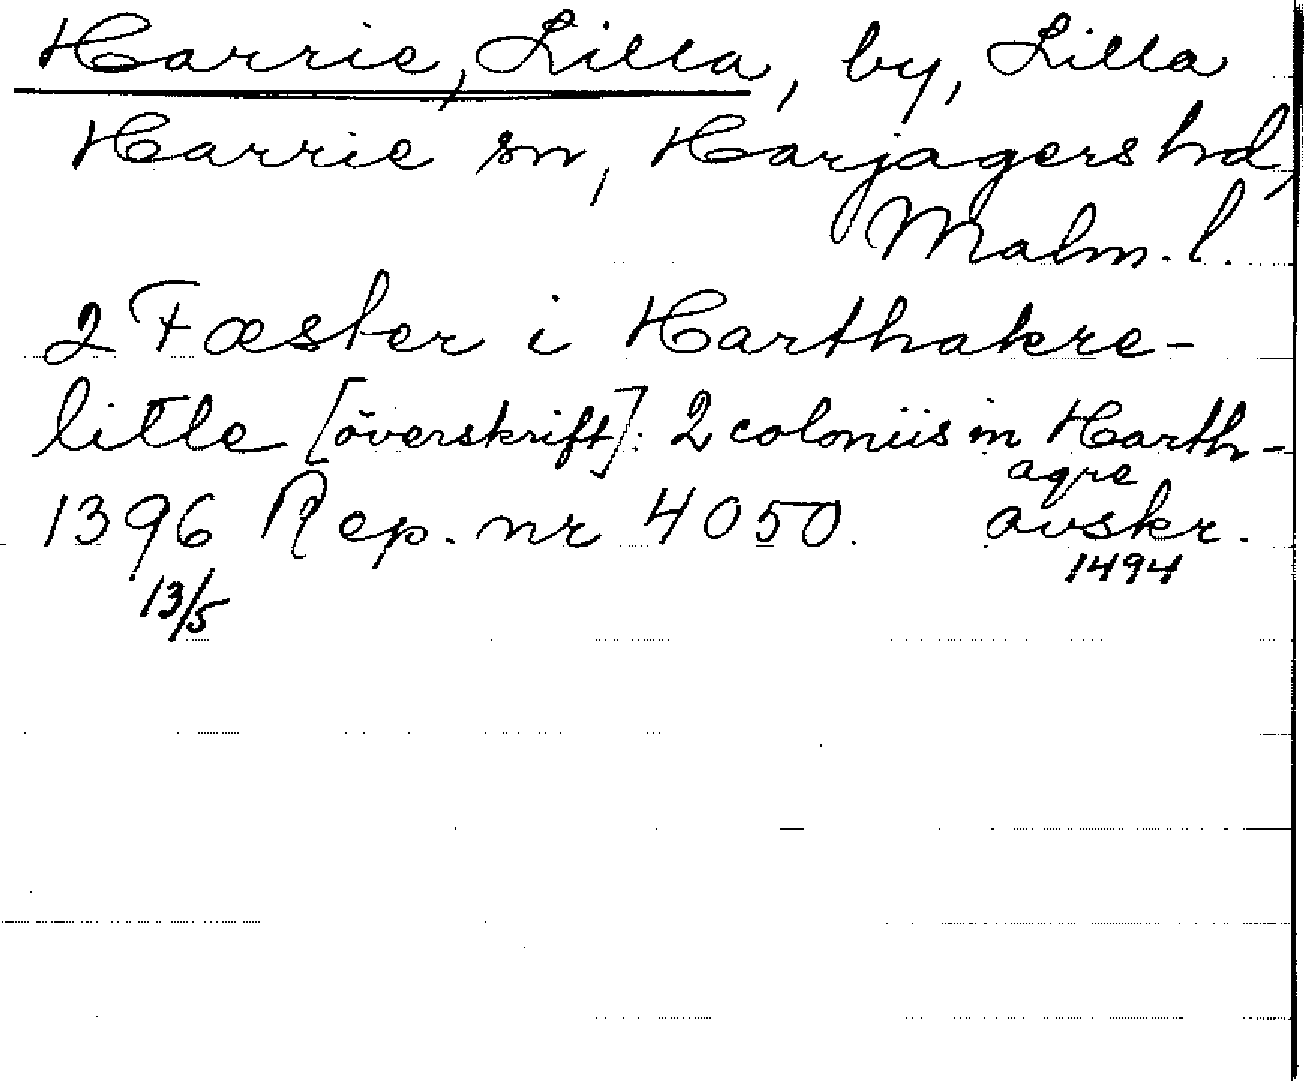 Harrie, Lilla, by, Lilla
Harrie sn, Harjagers hd,
Malm. l.
2 Fæster i Harthakre-
litle [överskrift]: 2 coloniis in Harth-
agre
1396 Rep. nr 4050. avskr.
13/5 1494